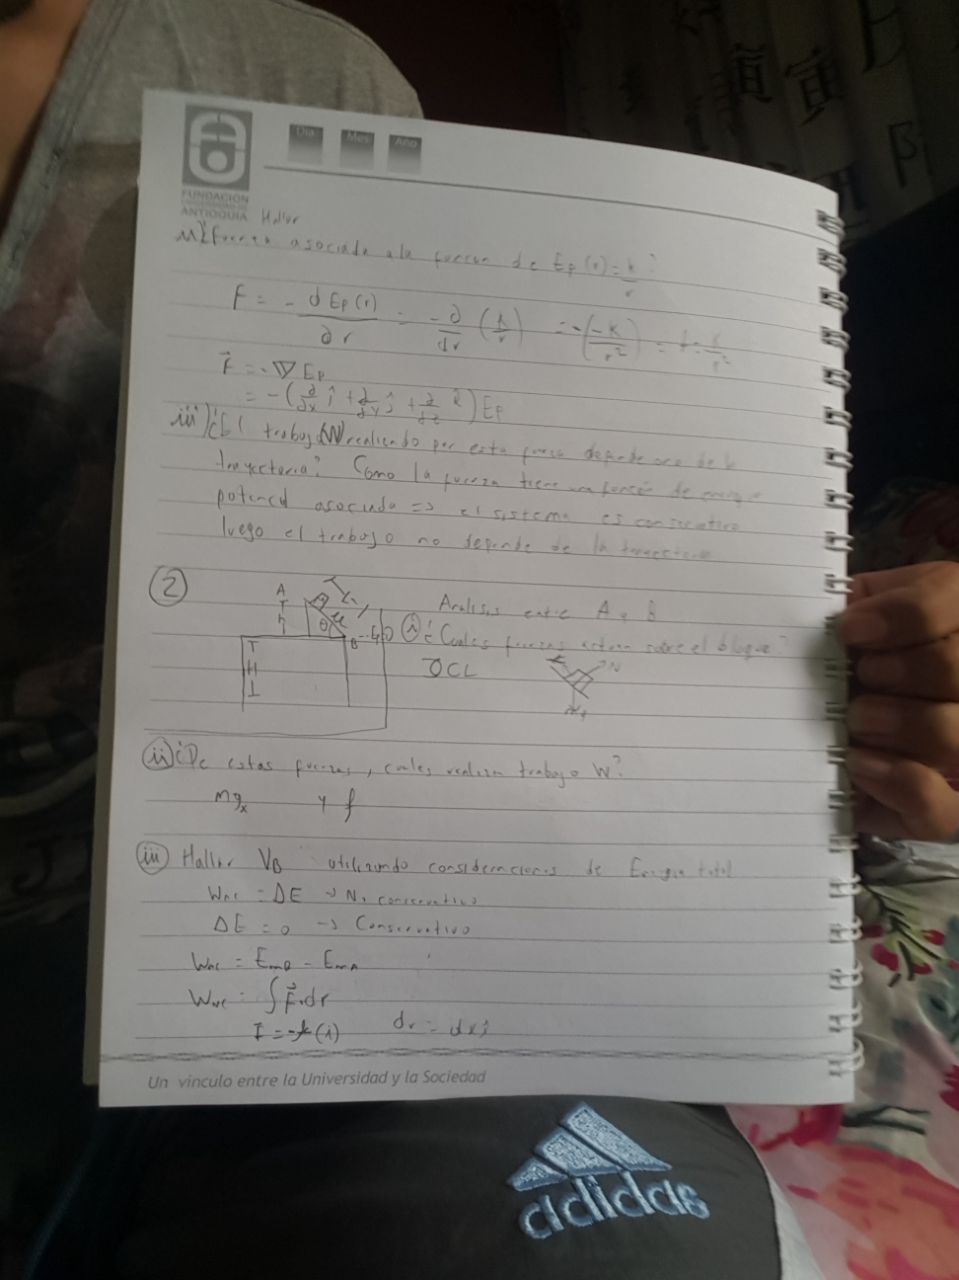 FUNDACIÓN
ANTIOQUIA
Día Mes Año
Hallar
fuerza asociada a la de Ep(r) = k/r ?
F = - d Ep(r)/∂r = -∂/dr (k/r) = -(-k/r²) =
F⃗ = -∇Ep
= -(∂/∂x î + ∂/∂y ĵ + ∂/∂z k̂) Ep
iii) ¿El trabajo (W) realizado por esta fuerza depende de la
trayectoria? Como la fuerza tiene una función de energia
potencial asociada => el sistema es conservativo
luego el trabajo no depende de la trayectoria
2
A
h
θ
μ
B
H
Analisis entre A y B
i) ¿Cuales fuerzas actuan sobre el bloque?
DCL
N
mg
ii) ¿De estas fuerzas, cuales realizan trabajo W?
mgx y f
iii) Hallar VB utilizando consideraciones de Energia total
Wnc = ΔE → No conservativo
ΔE = 0 → Conservativo
Wnc = EmB - EmA
Wnc = ∫ F⃗.dr
dr = dx î
Un vínculo entre la Universidad y la Sociedad
adidas